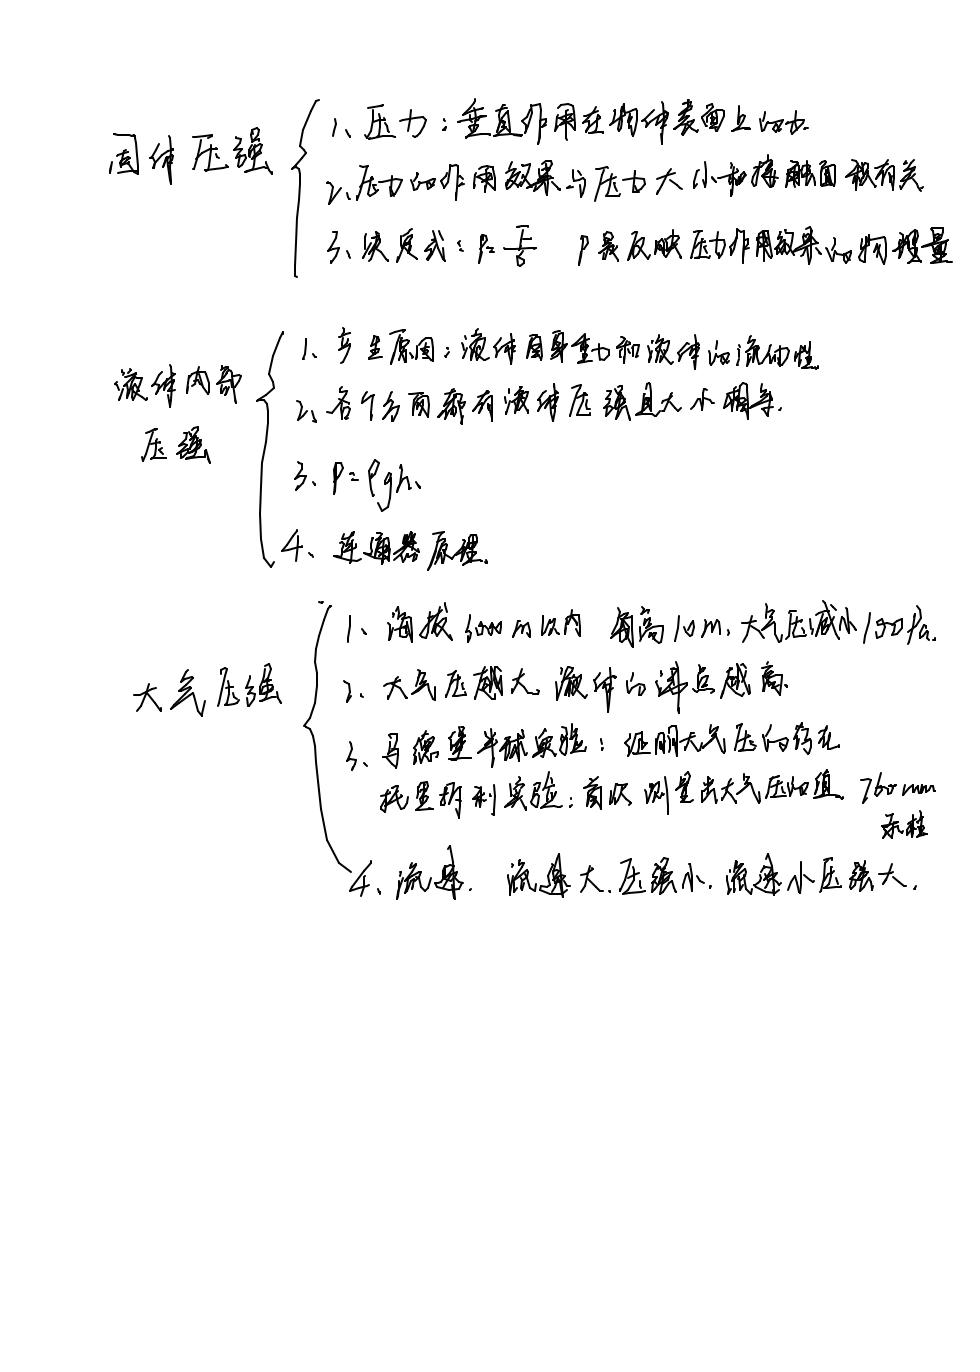 固体压强
1、压力：垂直作用在物体表面上的力.
2、压力的作用效果与压力大小和接触面积有关
3、决定式：P=F/S P是反映压力作用效果的物理量
液体内部
压强
1、产生原因：液体自身重力和液体的流动性
2、各个方向都有液体压强且大小相等.
3、P=ρgh、
4、连通器原理.
大气压强
1、海拔3000m以内 每高10m，大气压减小100Pa.
2、大气压越大，液体的沸点越高
3、马德堡半球实验：证明大气压的存在
托里拆利实验：首次测量出大气压的值 760mm
汞柱
4、流速. 流速大.压强小.流速小压强大.